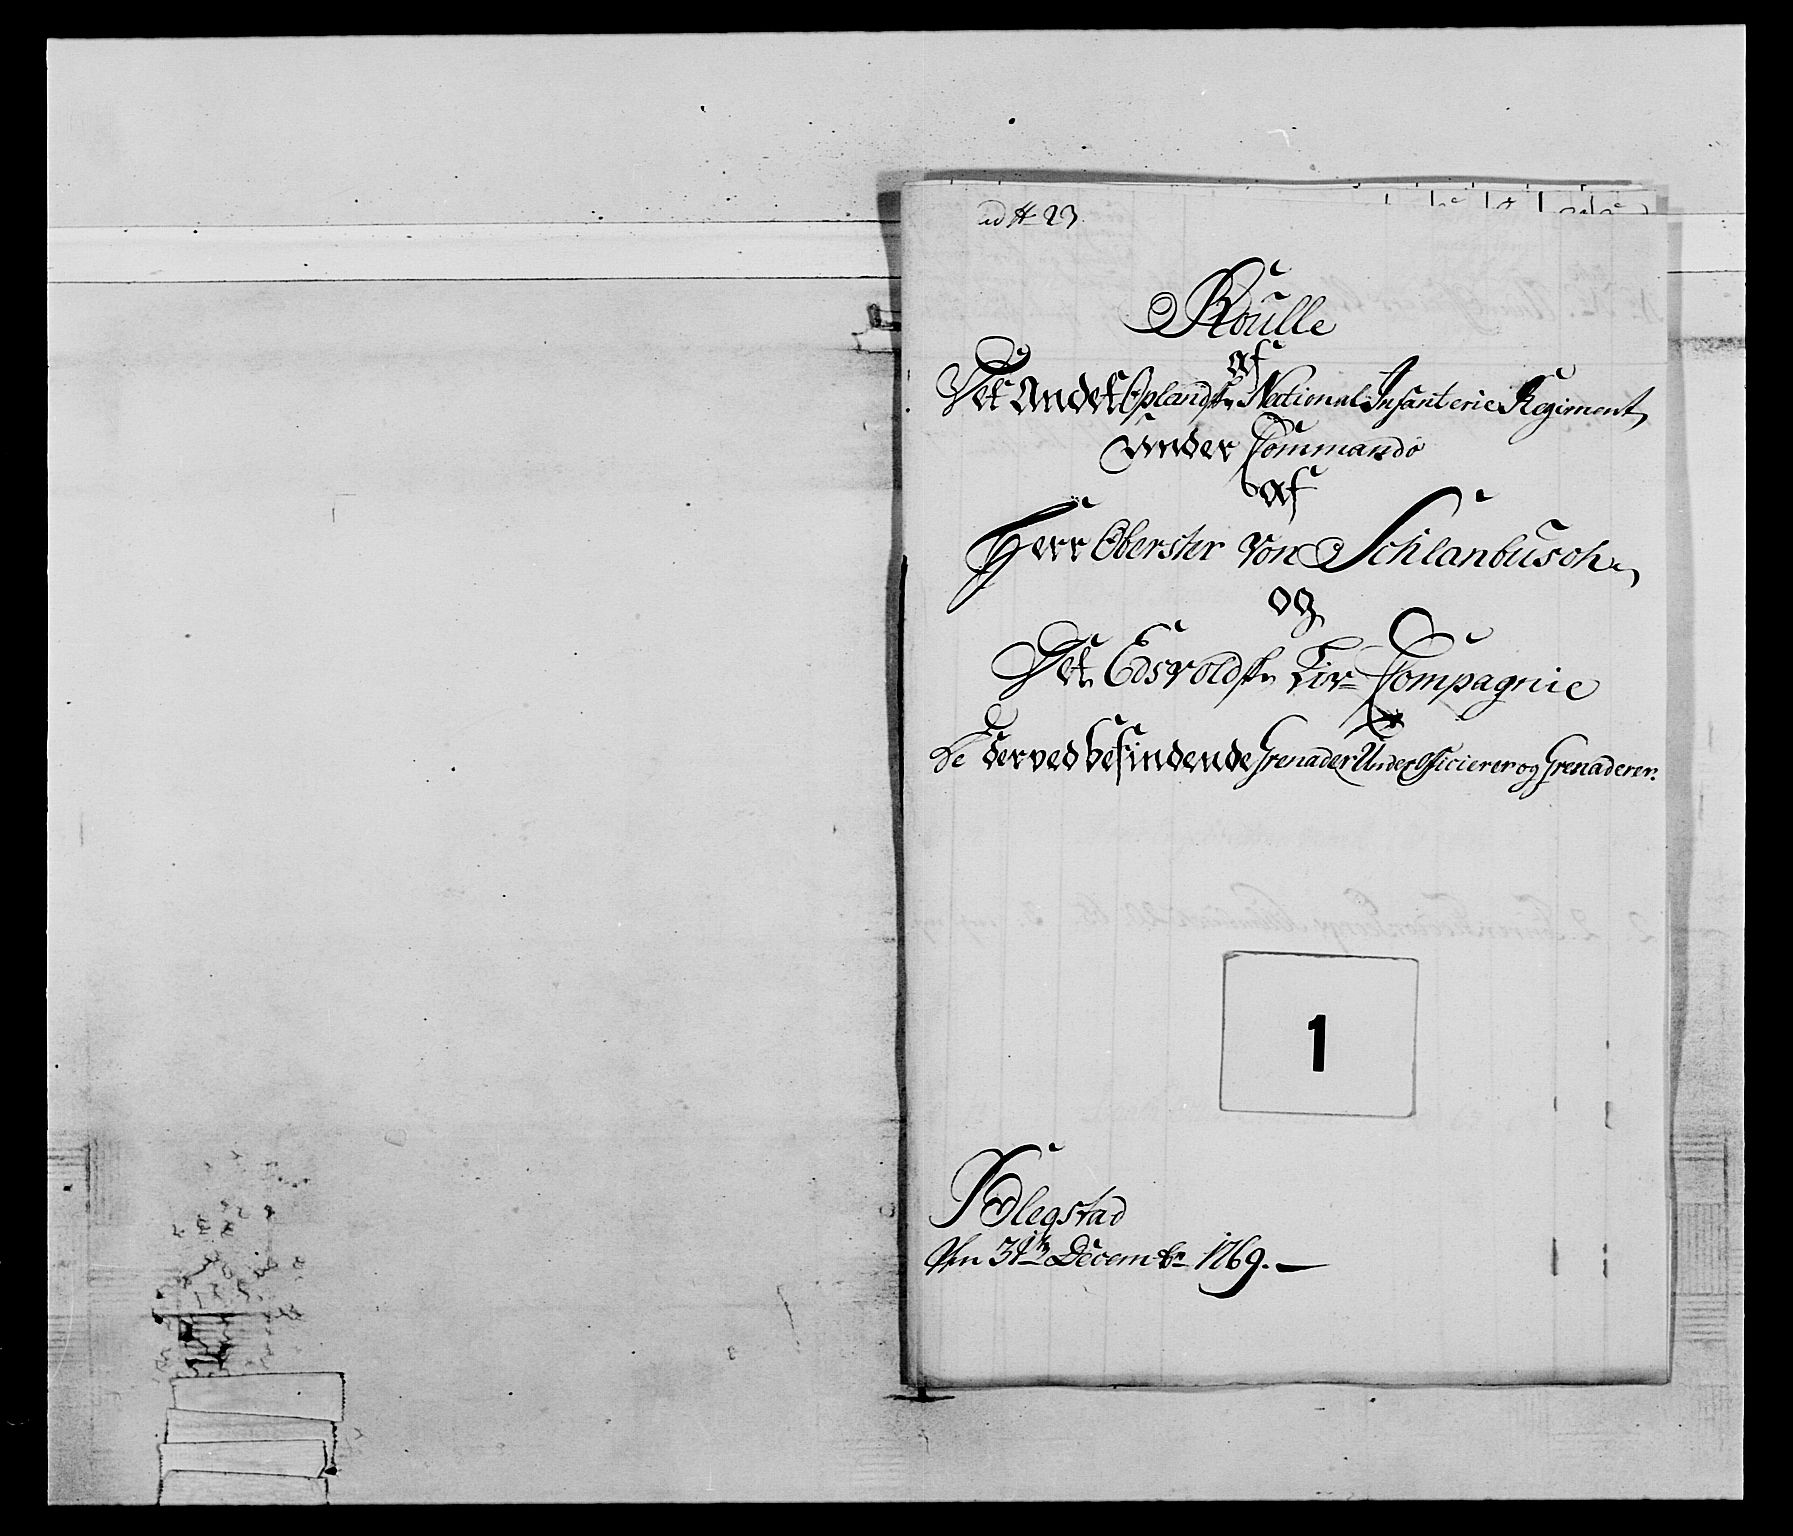 ad # 23.
Roulle
af
Det Andet Oplandske National Infanterie Regiment
under Commando
af
Herr Oberster von Schlanbusch
og
Det Edsvoldske Liv= Compagnie
De derved befindende Grenader UnderOfficierer og Grenaderer.
1
Den 31te Decembr 1769.